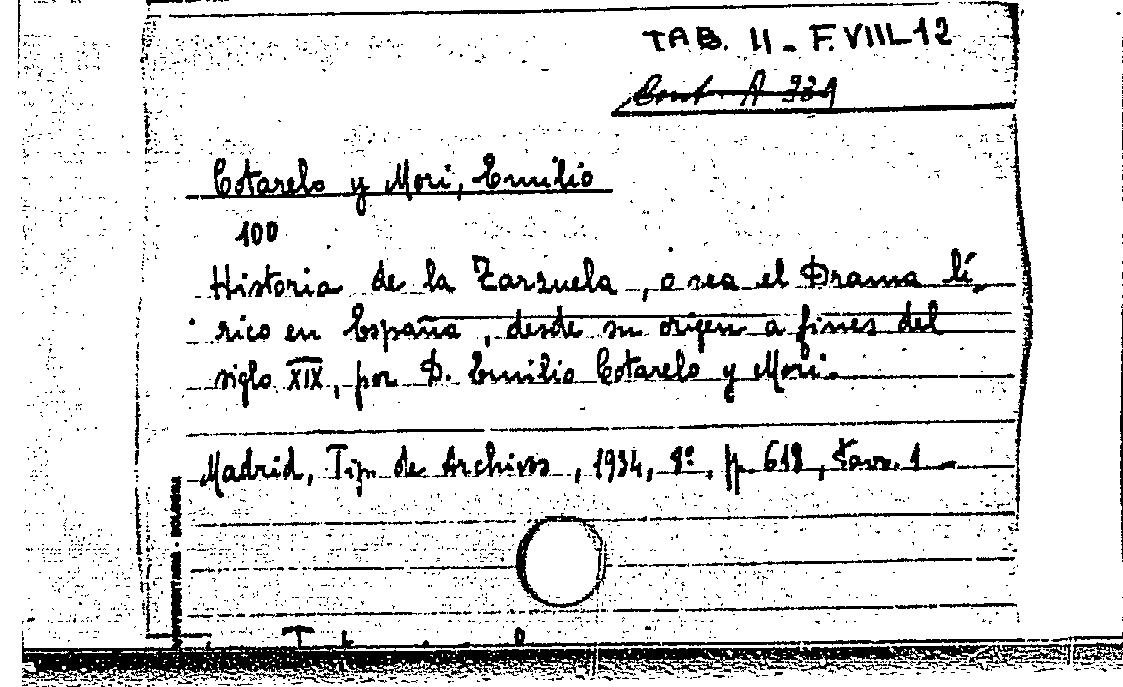 TAB. II - F. VIII-12
Cont. A 939
Cotarelo y Mori, Emilio
100
Historia de la Zarzuela, o sea el Drama lí-
rico en España, desde su origen a fines del
siglo XIX, por D. Emilio Cotarelo y Mori.
Madrid, Tip. de Archivos, 1934, 8º, pp. 618, tavv. 1
BOLOGNA